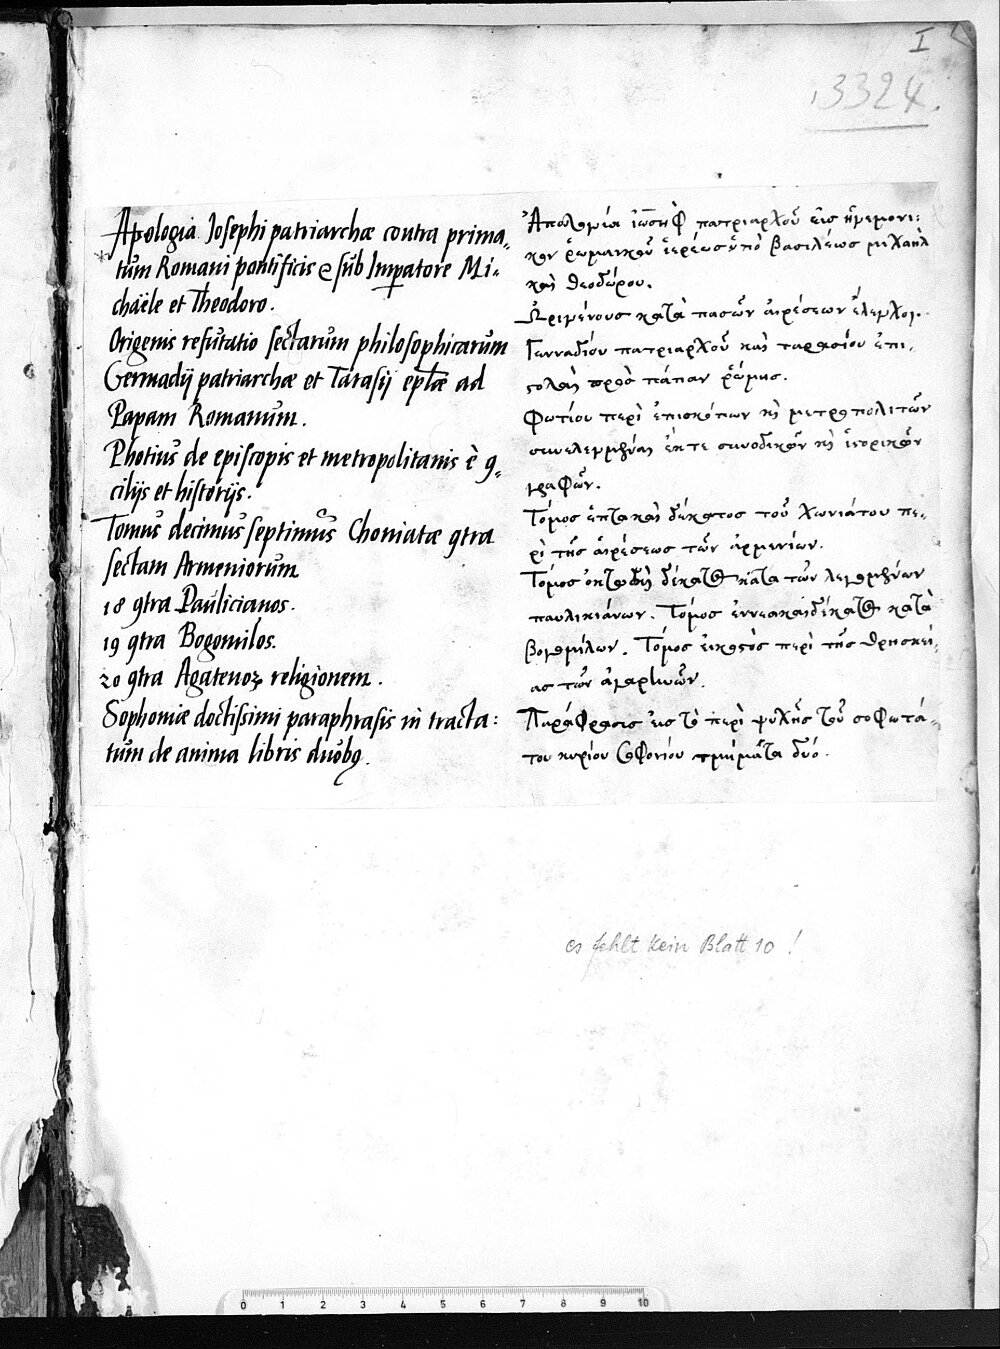 I
3324.
Apologia Josephi patriarchæ contra prima-
tum Romani pontificis & sub Imperatore Mi-
chaële et Theodoro.
Origenis refutatio sectarum philosophicarum
Gennadij patriarchæ et Tarasij eplæ ad
Papam Romanum.
Photius de episcopis et metropolitanis è 9-
cilijs et historijs.
Tomus decimus septimus Choniatæ 9tra
sectam Armeniorum
18 9tra Paulicianos.
19 9tra Bogomilos.
20 9tra Agarenoꝝ religionem.
Sophoniæ doctissimi paraphrasis in tracta:
tum de anima libris duob9.
Ἀπολογία ἰωσὴφ πατριαρχοῦ εἰς ἡγεμονι:
κὸν ῥωμαικοῦ ἱερέως ὑπὸ βασιλέως μιχαὴλ
καὶ θεοδώρου.
Ὠριγένους κατὰ πασῶν αἱρέσεων ἔλεγχοι.
Γενναδίου πατριαρχοῦ καὶ ταρασίου ἐπι-
ςολαὶ πρὸς πάπαν ῥώμης.
Φωτίου περὶ ἐπισκόπων κὶ μετροπολιτῶν
συνελεγμέναι ἐκ τε συνοδικῶν κὶ ἱςορικῶν
γραφῶν.
Τόμος ἑπτακαὶ δέκατος τοῦ Χωνιάτου πε-
ρὶ τῆς αἱρέσεως τῶν ἀρμενίων.
Τόμος ὀκτωδὴ δέκατος κατα τῶν λεγομένων
παυλικιάνων. Τόμος ἐννεακαιδέκατος κατὰ
βογομίλων. Τόμος εἰκοςὸς περὶ τῆς θρησκεί-
ας τῶν ἀγαρηνῶν.
Παράφρασις εἰς τὸ περὶ ψυχῆς τοῦ σοφωτά-
του κυρίου σοφονίου τμήματα δυό.
es fehlt kein Blatt 10 !
0 1 2 3 4 5 6 7 8 9 10